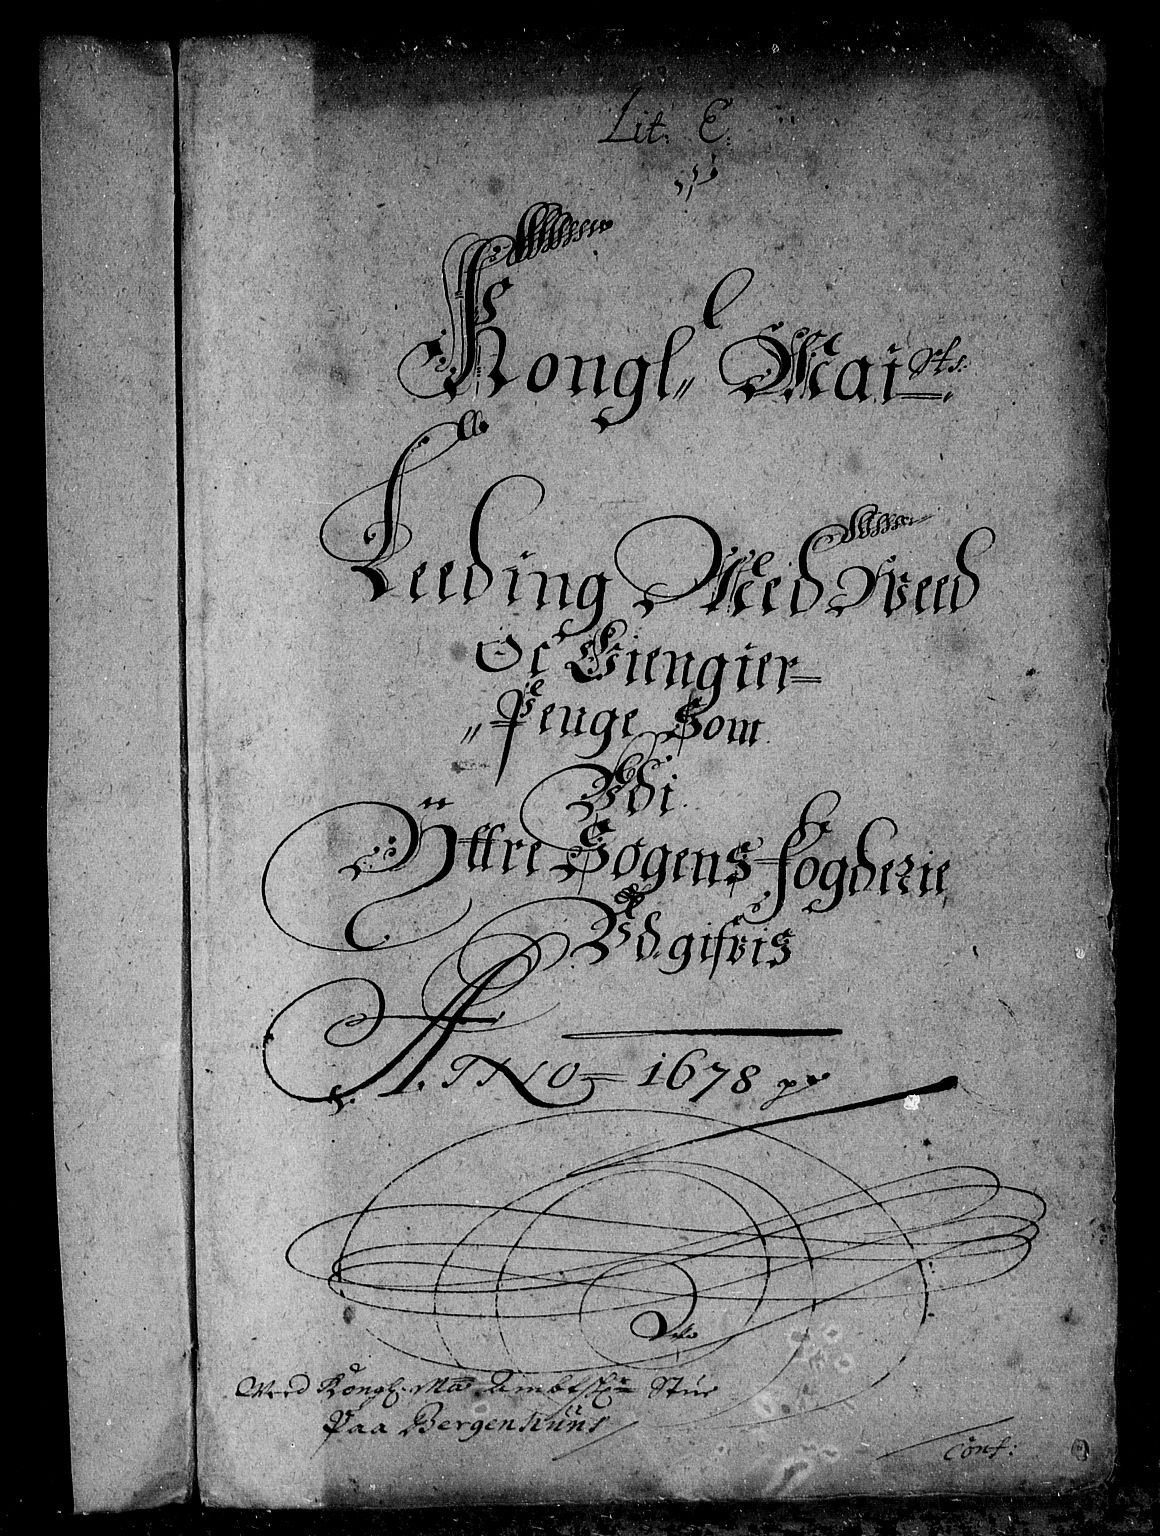 Lit. E.
Kongl„ Maiᵗˢ:
Leeding Med Sveed
Oc Giengier=
„Penge Som
Vdi
Ÿttre Sogens fogderie
Vdgifvis
Anno= 1678
Kongl. Ma
Paa Bergenhüüs
Conf: